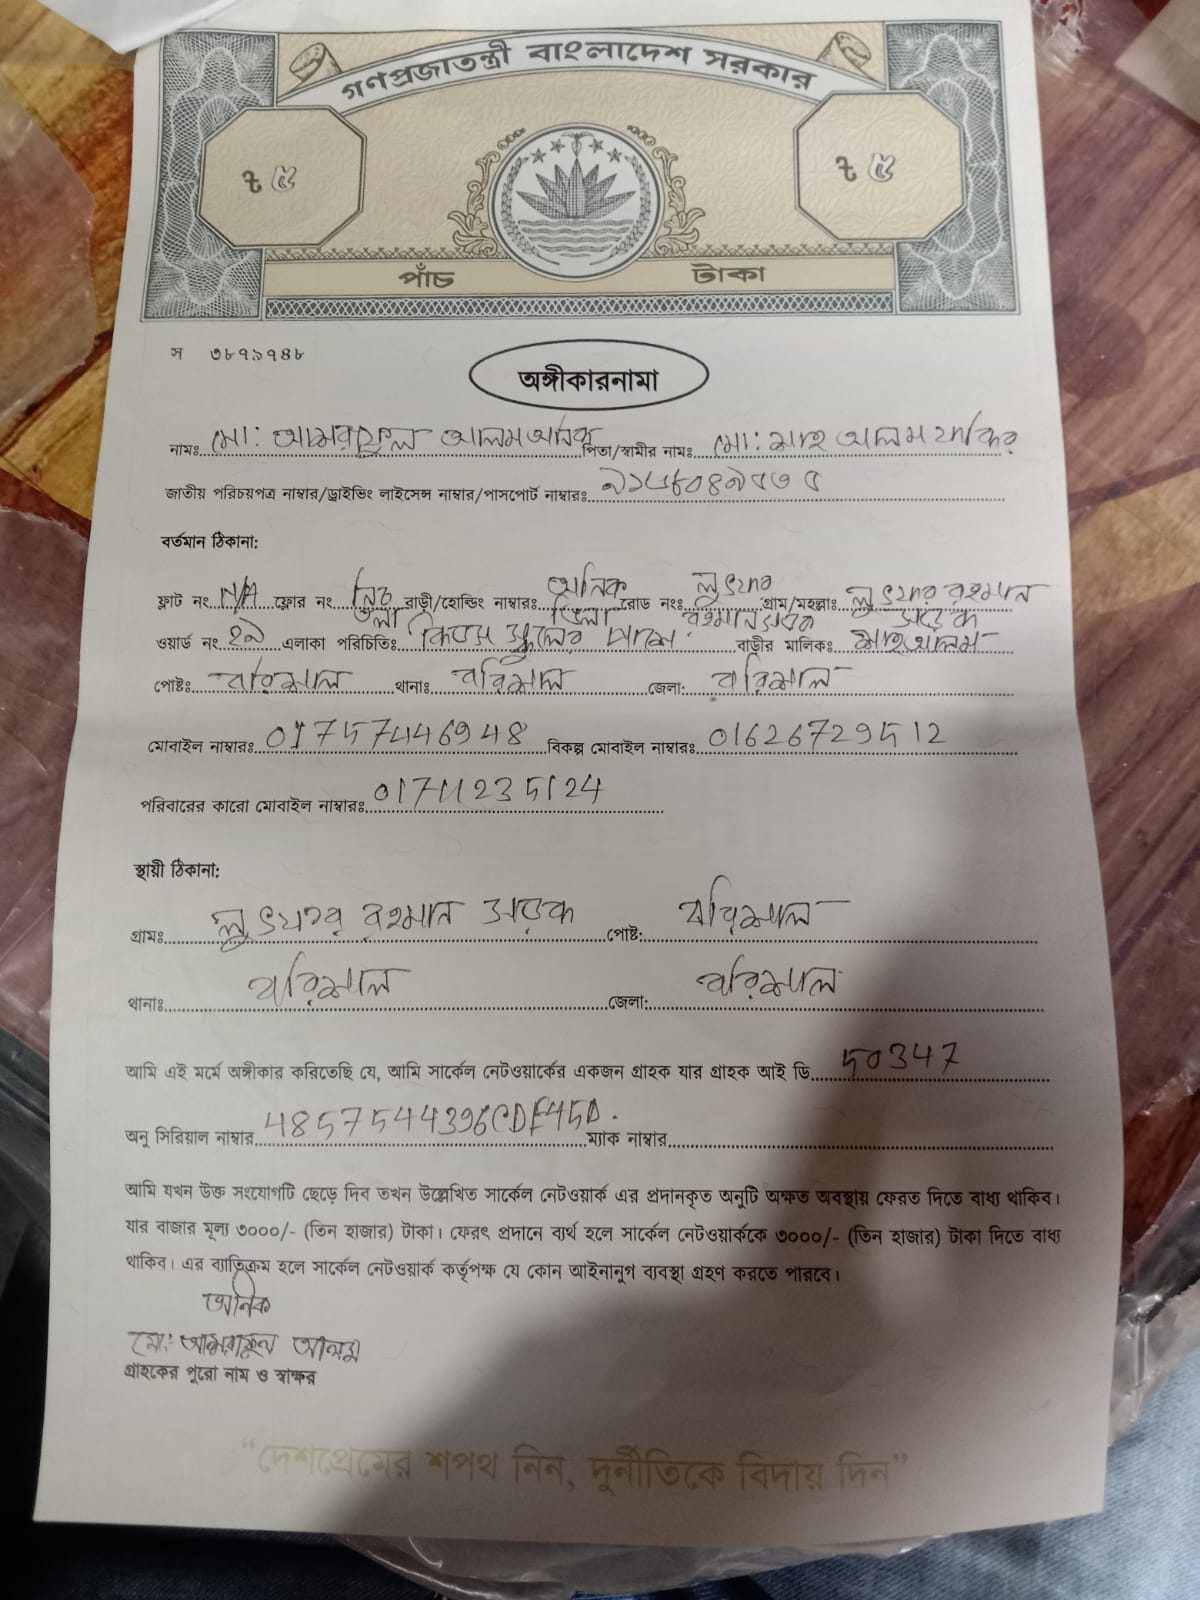 গণপ্রজাতন্ত্রী বাংলাদেশ সরকার
৳ ৫ ৳ ৫
পাঁচ টাকা
স ৩৮৭১৭৪৮
অঙ্গীকারনামা
নামঃ মো: আসরাফুল আলম অনিক পিতা/স্বামীর নামঃ মো: শাহ আলম ফকির
জাতীয় পরিচয়পত্র নাম্বার/ড্রাইভিং লাইসেন্স নাম্বার/পাসপোর্ট নাম্বারঃ
বর্তমান ঠিকানা:
ফ্লাট নং N/A ফ্লোর নং নিচ তলা বাড়ী/হোল্ডিং নাম্বারঃ অনিক ভিলা রোড নংঃ লুৎফর রহমান সড়ক গ্রাম/মহল্লাঃ লুৎফর রহমান সড়ক
ওয়ার্ড নং ২৯ এলাকা পরিচিতিঃ স্কুলের পাশে বাড়ীর মালিকঃ শাহ আলম
পোষ্টঃ বরিশাল থানাঃ বরিশাল জেলা: বরিশাল
মোবাইল নাম্বারঃ 01757446948 বিকল্প মোবাইল নাম্বারঃ 01626729512
পরিবারের কারো মোবাইল নাম্বারঃ 01711235124
স্থায়ী ঠিকানা:
গ্রামঃ লুৎফর রহমান সড়ক পোষ্ট: বরিশাল
থানাঃ বরিশাল জেলা: বরিশাল
আমি এই মর্মে অঙ্গীকার করিতেছি যে, আমি সার্কেল নেটওয়ার্কের একজন গ্রাহক যার গ্রাহক আই ডি 50347
অনু সিরিয়াল নাম্বার 48575444396CDF45D. ম্যাক নাম্বার
আমি যখন উক্ত সংযোগটি ছেড়ে দিব তখন উল্লেখিত সার্কেল নেটওয়ার্ক এর প্রদানকৃত অনুটি অক্ষত অবস্থায় ফেরত দিতে বাধ্য থাকিব।
যার বাজার মূল্য ৩০০০/- (তিন হাজার) টাকা। ফেরৎ প্রদানে ব্যর্থ হলে সার্কেল নেটওয়ার্ককে ৩০০০/- (তিন হাজার) টাকা দিতে বাধ্য
থাকিব। এর ব্যাতিক্রম হলে সার্কেল নেটওয়ার্ক কর্তৃপক্ষ যে কোন আইনানুগ ব্যবস্থা গ্রহণ করতে পারবে।
অনিক
মো: আসরাফুল আলম
গ্রাহকের পুরো নাম ও স্বাক্ষর
“দেশপ্রেমের শপথ নিন, দুর্নীতিকে বিদায় দিন”